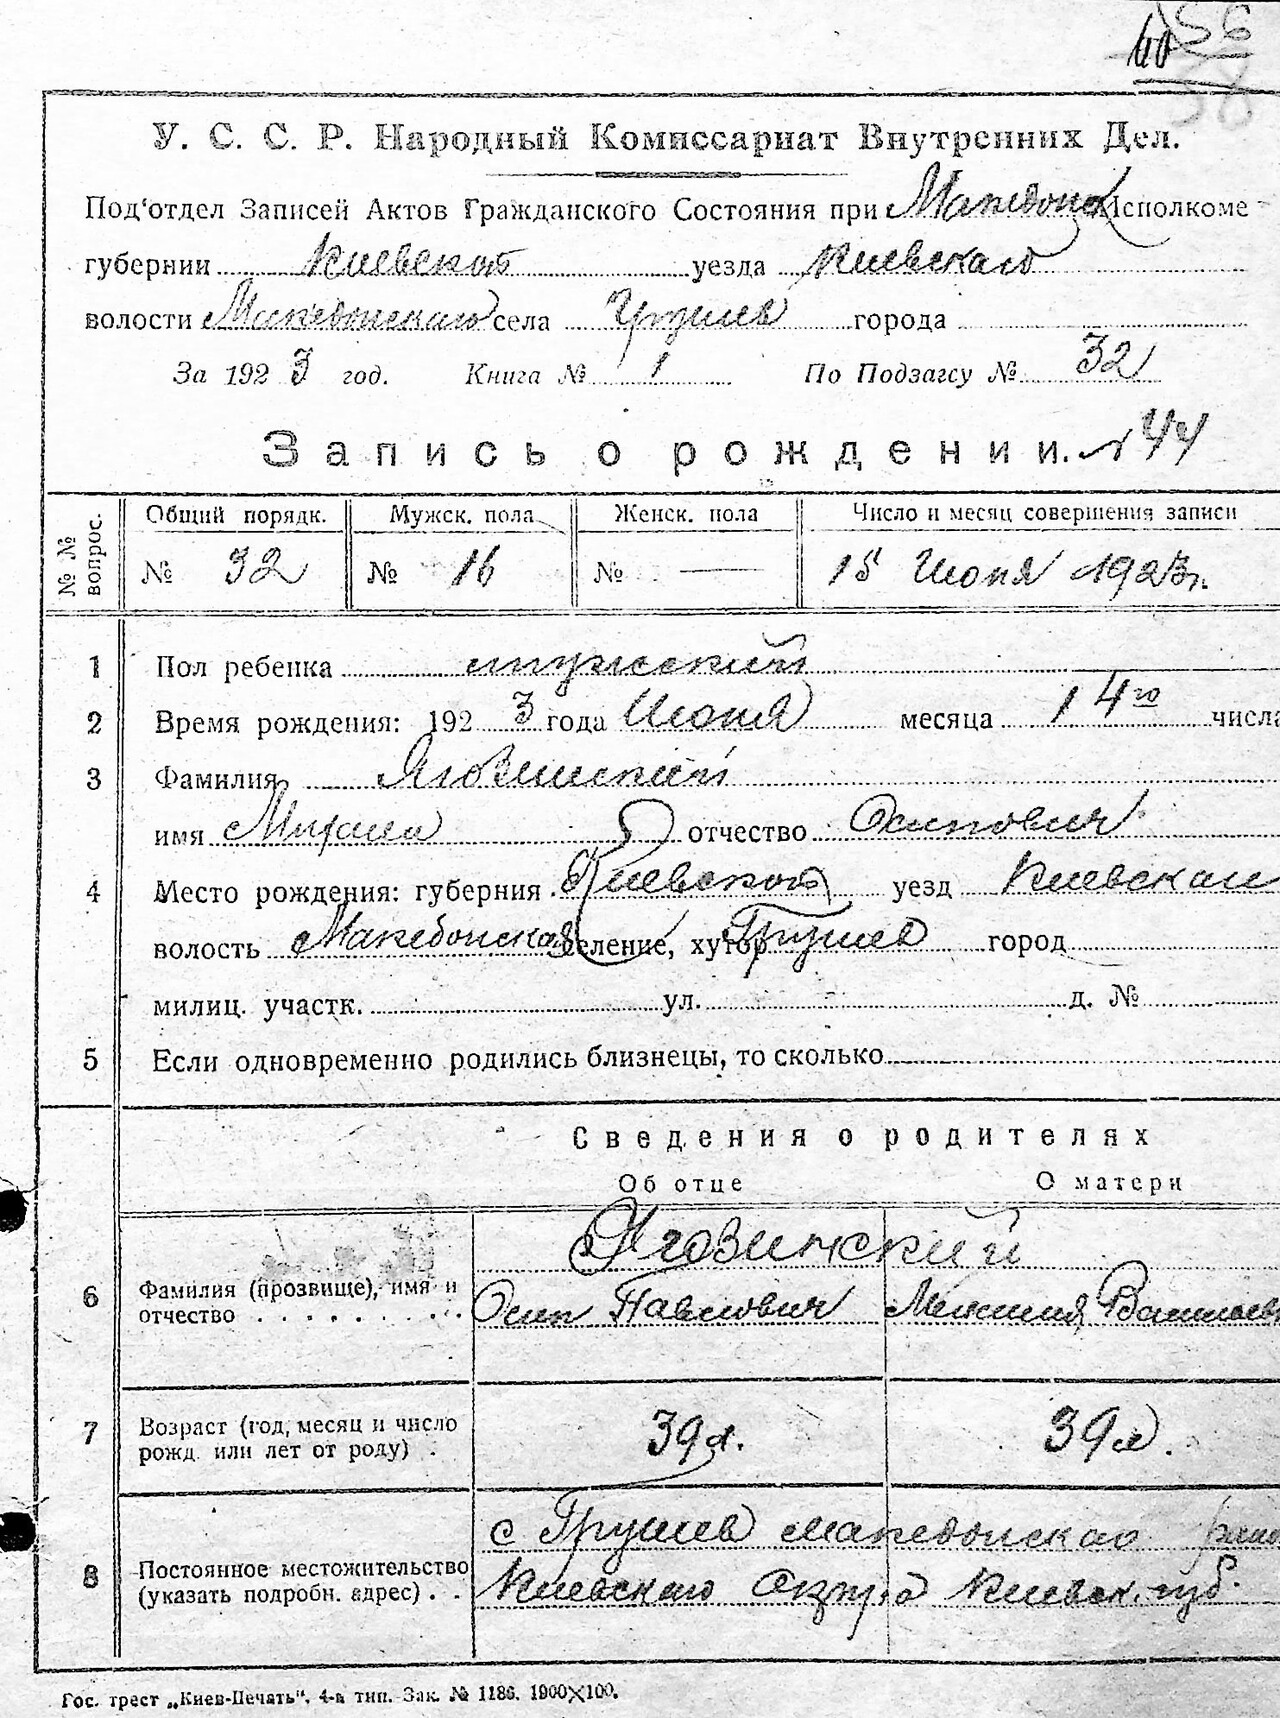 У. С. С. Р. Народный Комиссариат Внутренних Дел.
Под‘отдел Записей Актов Гражданского Состояния при Македонск Исполкоме
губернии Киевской уезда Киевскаго
волости Македонскаго села Грушев города
За 1923 год. Книга № 1 По Подзагсу № 32
Запись о рождении. № 44
№ № вопрос. Общий порядк. Мужск. пола Женск. пола Число и месяц совершения записи
№ 32 № 16 № — 15 Июня 1923 г.
1 Пол ребенка мужский
2 Время рождения: 1923 года Июня месяца 14го числа
3 Фамилия Яговинский
имя Михаил отчество Осипович
4 Место рождения: губерния Киевской уезд Киевскаго
волость Македонская селение, хутор Грушев город
милиц. участк. ул. д. №
5 Если одновременно родились близнецы, то сколько
Сведения о родителях
Об отце О матери
Яговинский
6 Фамилия (прозвище), имя и
отчество . . . . . . . . .
Осип Павлович Васильев
7 Возраст (год, месяц и число
рожд. или лет от роду) .
39 л. 39 л.
с Грушев Македонскаго
8 Постоянное местожительство
(указать подробн. адрес) . .
Киевскаго Округа Киевск. губ.
Гос. трест „Киев-Печать“, 4-я тип. Зак. № 1186. 1900×100.